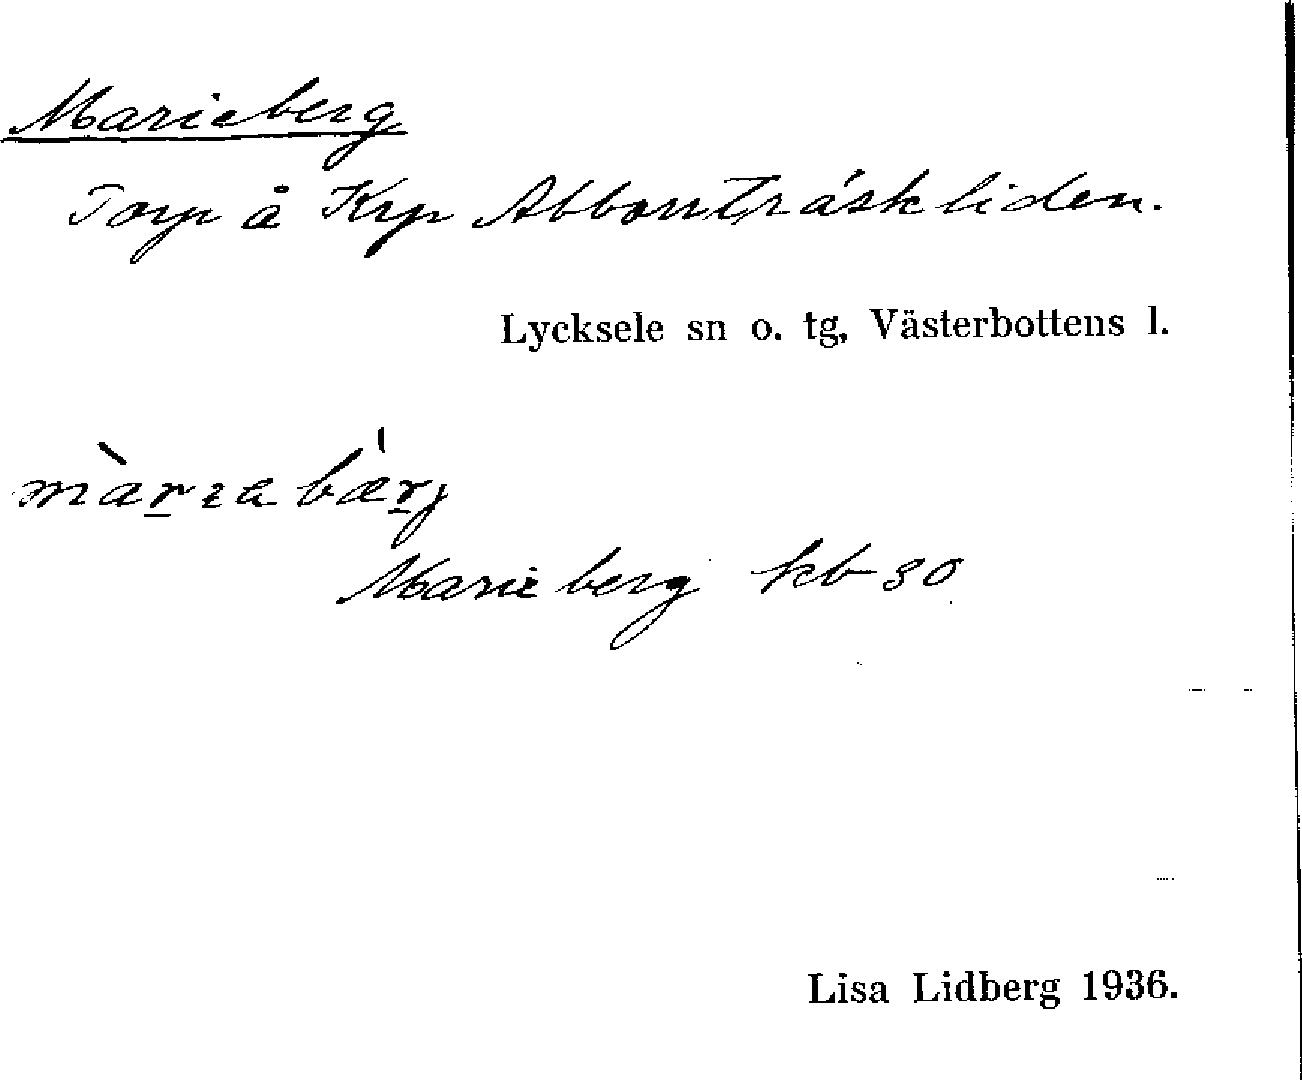 Marieberg
Torp å Krp Abborrträskliden.
Lycksele sn o. tg, Västerbottens l.
màrɪabæ̀rj
Marieberg kb 30
Lisa Lidberg 1936.